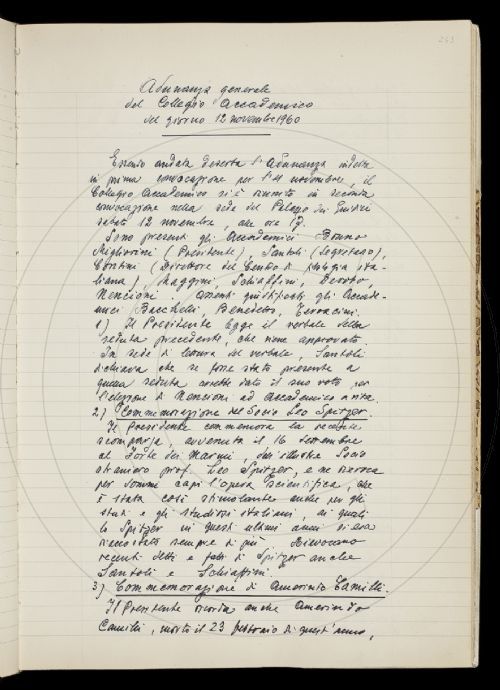 263
Adunanza generale
del Collegio Accademico
del giorno 12 novembre 1960
Essendo andata deserta l'Adunanza indetta
in prima convocazione per l'11 novembre, il
Collegio Accademico si è riunito in seconda
convocazione nella sede del Palazzo dei Giudici
sabato 12 novembre, alle ore 17.
Sono presenti gli Accademici Bruno
Migliorini (Presidente), Santoli (Segretario),
Contini (Direttore del Centro di filologia ita-
liana), Maggini, Schiaffini, Devoto,
Nencioni. assenti giustificati gli Accade-
mici Bacchelli, Benedetto, Terracini.
1) Il Presidente legge il verbale della
seduta precedente, che viene approvato.
In sede di lettura del verbale, Santoli
dichiara che se fosse stato presente a
quella seduta avrebbe dato il suo voto per
l'elezione di Nencioni ad Accademico a vita.
2) Commemorazione del Socio Leo Spitzer.
Il presidente commemora la recente
scomparsa, avvenuta il 16 settembre
al Forte dei Marmi, dell'illustre Socio
straniero prof. Leo Spitzer, e ne rievoca
per sommi capi l'opera scientifica, che
è stata così stimolante anche per gli
studi e gli studiosi italiani, ai quali
lo Spitzer in questi ultimi anni si era
sempre di più Rievocano
recenti detti e fatti di Spitzer anche
Santoli e Schiaffini.
3) Commemorazione di Amerindo Camilli.
Il Presidente ricorda anche Amerindo
Camilli, morto il 23 febbraio di quest'anno,